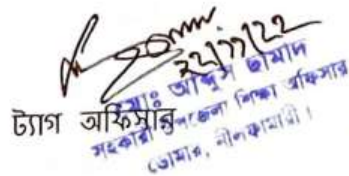 ২২/১১/২২
ট্যাগ অফিসার
মোঃ আব্দুস ছামাদ
সহকারী উপজেলা শিক্ষা অফিসার
ডোমার, নীলফামারী।